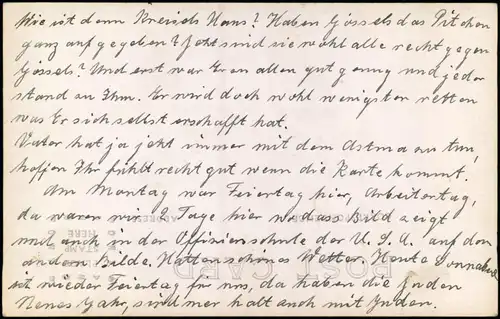 Wie ist denn Kreisels Hans? Haben Gössels das Pitchen
ganz aufgegeben? Jetzt sind sie wohl alle recht gegen
Gössels? Und erst war Er an allen gut genug und jeder
stand zu Ihm. Er wird doch wohl wenigsten retten
was Er sich selbst erschafft hat.
Vater hat ja jetzt immer mit dem Astma zu tun,
hoffen Ihr fühlt recht gut wenn die Karte kommt.
Am Montag war Feiertag hier, Arbeitertag,
da waren wir 2 Tage hier was das Bild zeigt
und auch in der Offiziersschule der U.S.A. auf dem
andern Bilde. Hatten schönes Wetter. Heute Sonnabend
ist wieder Feiertag für uns, da haben die Juden
Neues Jahr, sind mer halt auch mit Juden.
POST CARD
STAMP
HERE